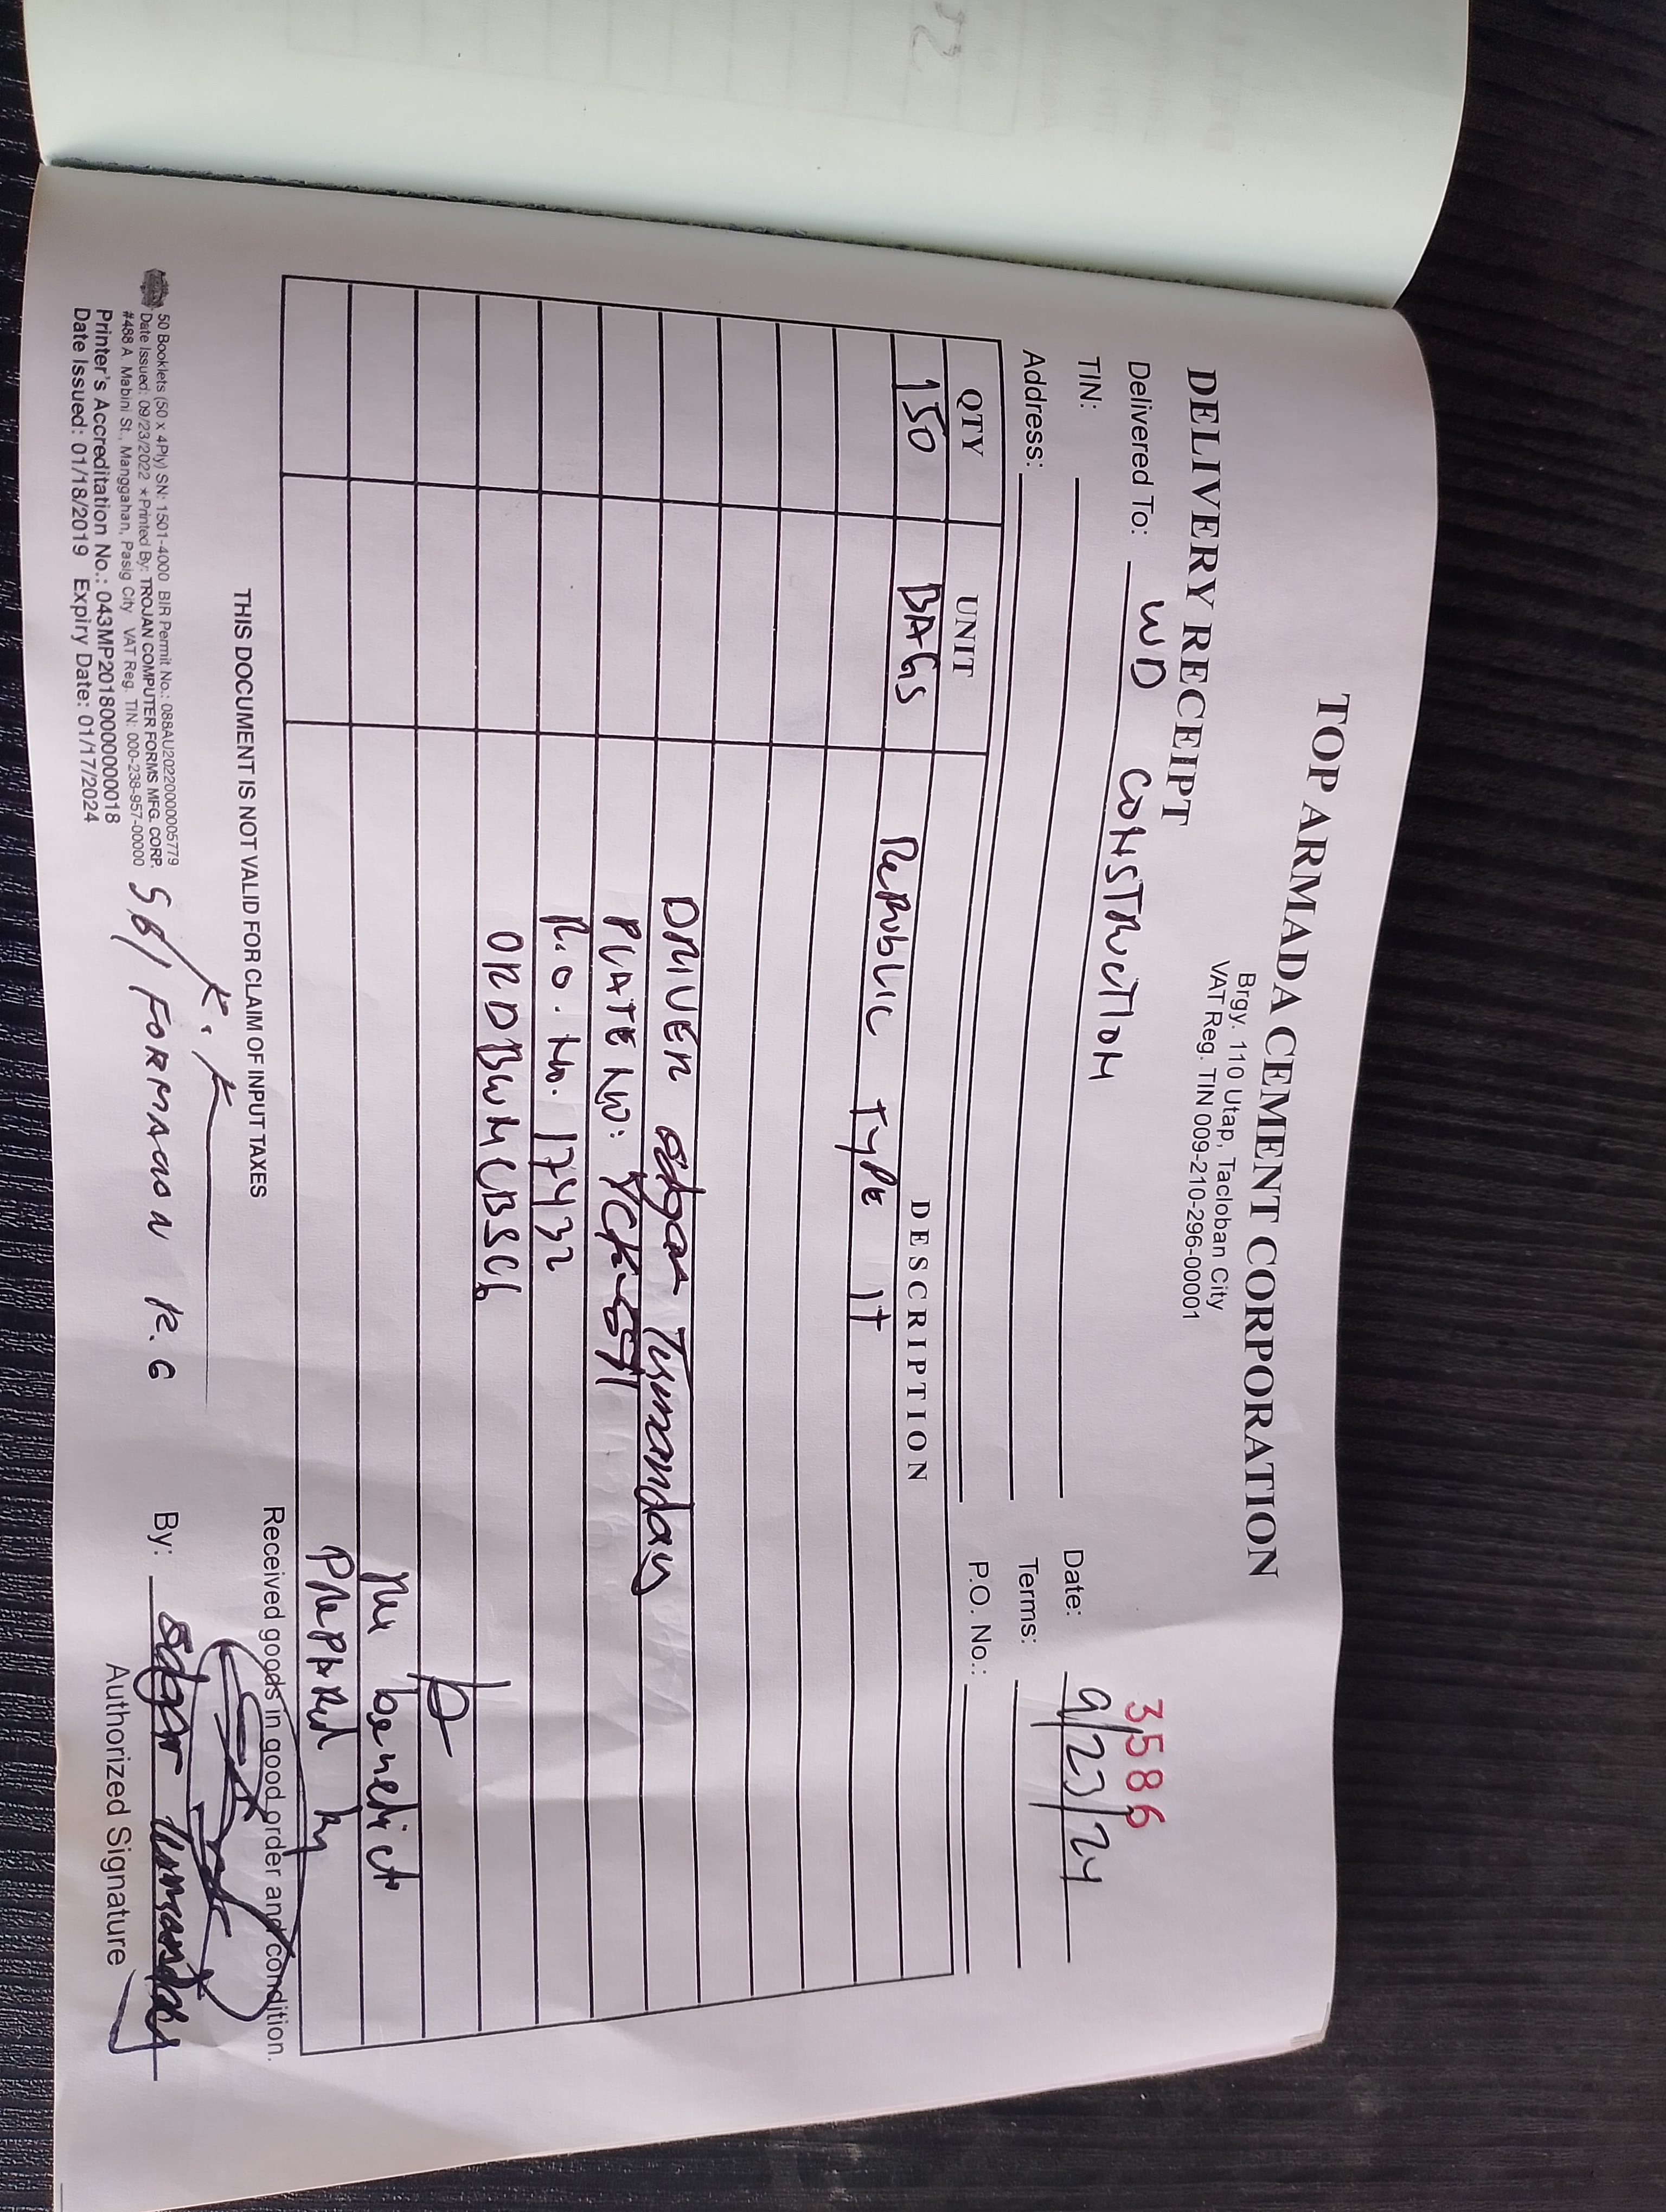 TOP ARMADA CEMENT CORPORATION
Brgy. 110 Utap, Tacloban City
VAT Reg. TIN 009-210-296-00001
DELIVERY RECEIPT
3586
Delivered To: WD CONSTRUCTION
Date: 9/23/24
TIN:
Terms:
Address:
P.O. No.:
QTY UNIT DESCRIPTION
150 BAGS Republic Type 1t
DRIVER edgar Tumandao
PLATE NO:
R.O. No. 17432
ORDBWMCBSC6
benedict
prepared by
THIS DOCUMENT IS NOT VALID FOR CLAIM OF INPUT TAXES
Received goods in good order and condition.
50 Booklets (50 x 4Ply) SN: 1501-4000 BIR Permit No.: 088AU20220000005779
Date Issued: 09/23/2022 ★Printed By: TROJAN COMPUTER FORMS MFG. CORP.
#488 A. Mabini St., Manggahan, Pasig City VAT Reg. TIN: 000-238-957-00000
Printer's Accreditation No.: 043MP20180000000018
Date Issued: 01/18/2019 Expiry Date: 01/17/2024
SG/ FORMASON R.G
By: edgar Tumandao
Authorized Signature